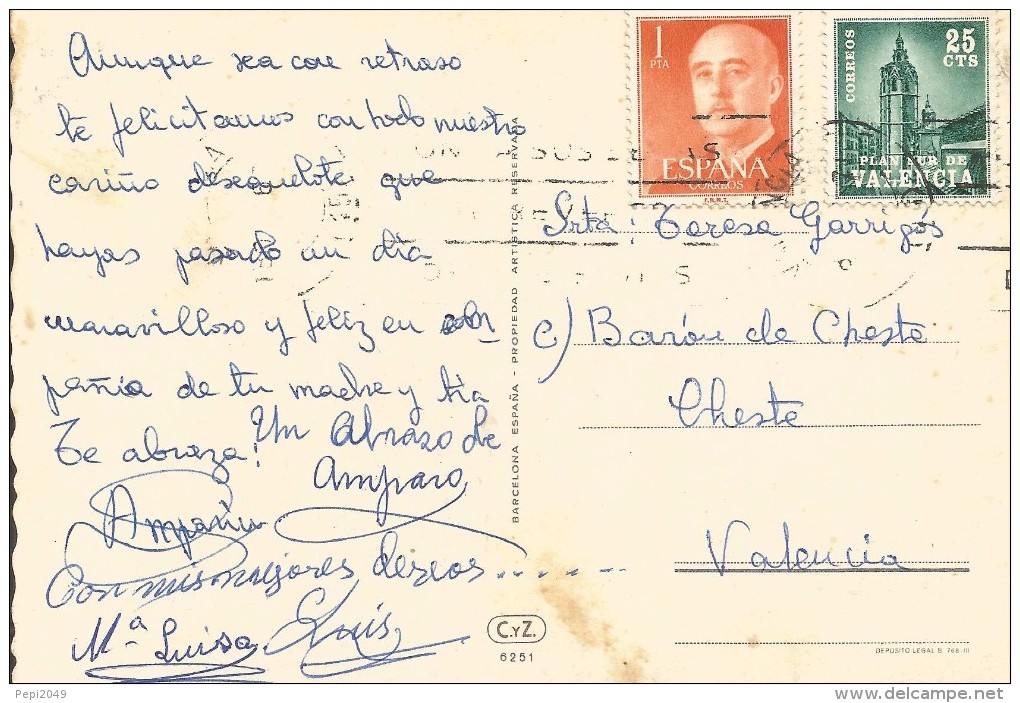 Aunque sea con retraso
te felicitamos con todo nuestro
cariño deseandote que
hayas pasado un día
maravilloso y feliz en com
pañia de tu madre y tía
Te abraza!
Un Abrazo de
Amparo
Amparin
Con mis mejores deseos......
Mª Luisa
Luis
BARCELONA ESPAÑA - PROPIEDAD ARTISTICA RESERVADA
C.YZ.
6251
1
PTA
ESPAÑA
CORREOS
F.N.M.T.
CORREOS
25
CTS
PLAN SUR DE
VALENCIA
Srta: Teresa Garrigós
c) Barón de Cheste
Cheste
Valencia
DEPOSITO LEGAL B. 768-III
Pepi2049
delcampe.net